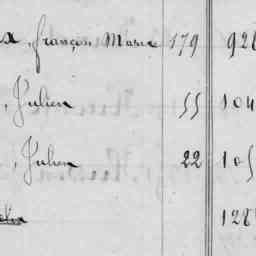 x, françois Marie 179 926
, Julien 55 104
, Julien 22 105
128